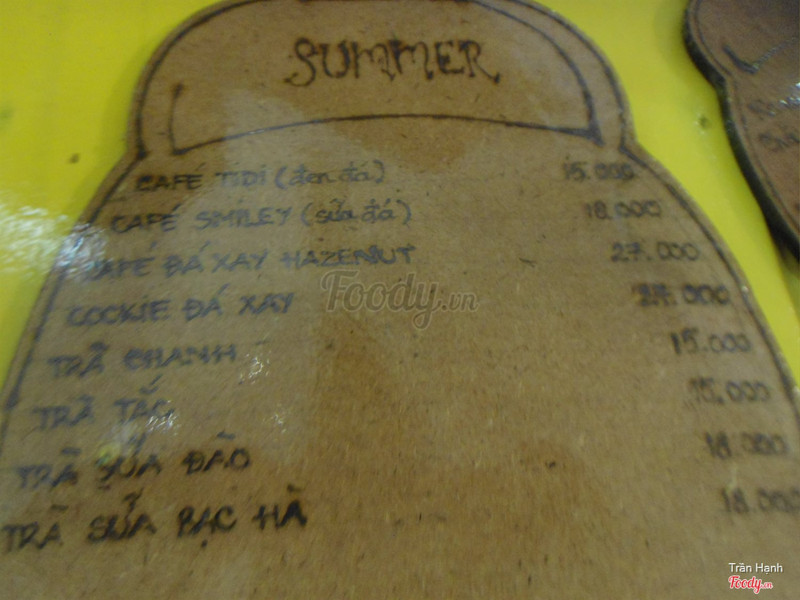 SUMMER
CAFÉ TIDI (đen đá) 15.000
CAFÉ SMILEY (sữa đá) 18.000
CAFÉ ĐÁ XAY HAZENUT 27.000
Foody.vn
COOKIE ĐÁ XAY 27.000
TRÀ CHANH 15.000
TRÀ TẮC 15.000
TRÀ SỮA ĐÀO 18.000
TRÀ SỮA BẠC HÀ 18.000
Trần Hạnh
Foody.vn